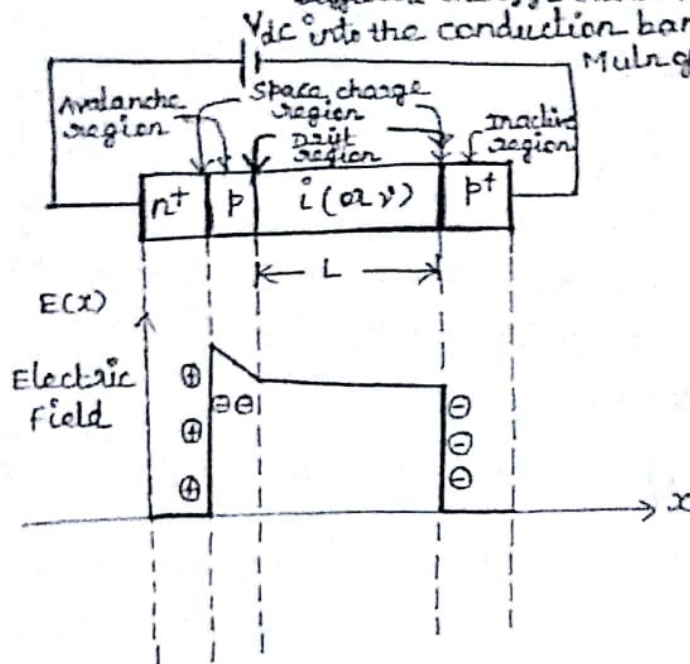 Vdc into the conduction ban
Muln of
Avalanche
region
Space charge
region
Drift
region
Inactive
region
n+ p i (or ν) p+
L
E(x)
Electric
Field
⊕
⊖⊖
⊖
⊕
⊖
⊕
⊖
x